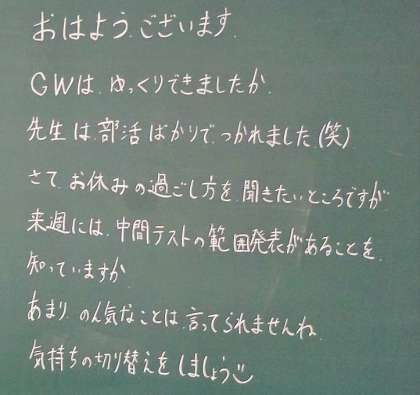 おはようございます.
GWは、ゆっくりできましたか.
先生は、部活ばかりで、つかれました(笑)
さて、お休みの過ごし方を、聞きたいところですが
来週には、中間テストの範囲発表があることを、
知っていますか
あまり、のん気なことは、言ってられませんね.
気持ちの切り替えをしましょう